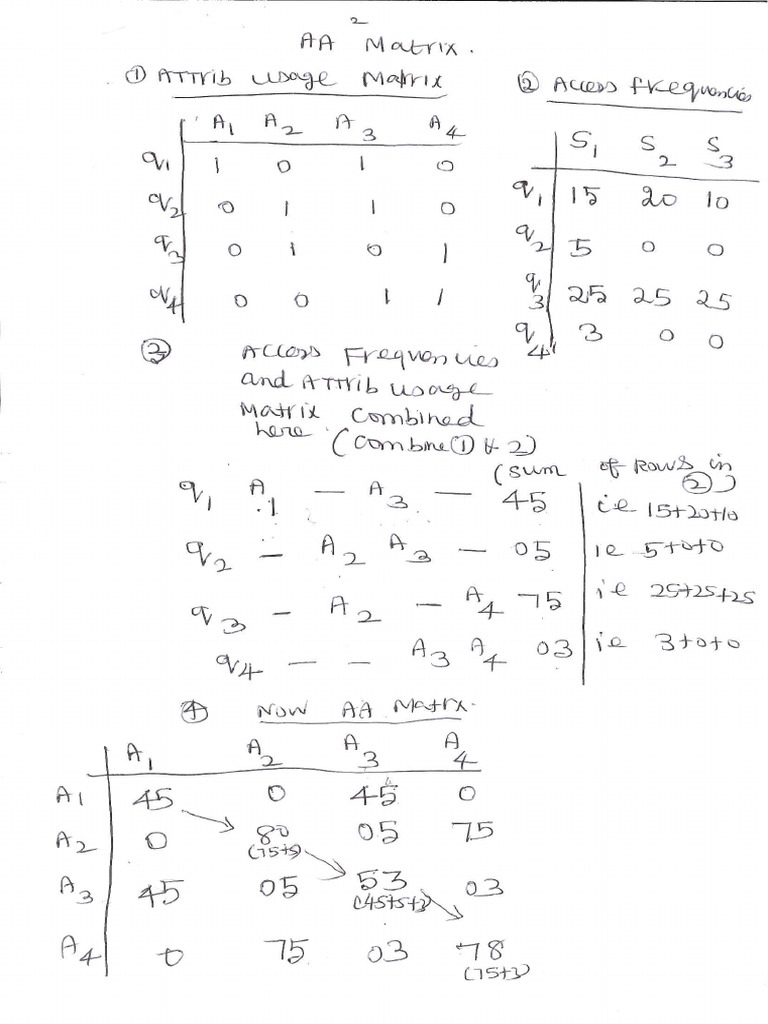 2
AA Matrix.
① ATTrib usage Matrix
② Access frequencies
A1 A2 A3 A4
q1 1 0 1 0
q2 0 1 1 0
q3 0 1 0 1
q4 0 0 1 1
S1 S2 S3
q1 15 20 10
q2 5 0 0
q3 25 25 25
q4 3 0 0
③ Access Frequencies
and ATTrib usage
Matrix combined
here (combine ① & 2)
(sum of rows in ②)
q1 A1 — A3 — 45 ie 15+20+10
q2 — A2 A3 — 05 ie 5+0+0
q3 — A2 — A4 75 ie 25+25+25
q4 — — A3 A4 03 ie 3+0+0
④ Now AA Matrx.
A1 A2 A3 A4
A1 45 0 45 0
A2 0 80 05 75
(75+5)
A3 45 05 53 03
(45+5+3)
A4 0 75 03 78
(75+3)